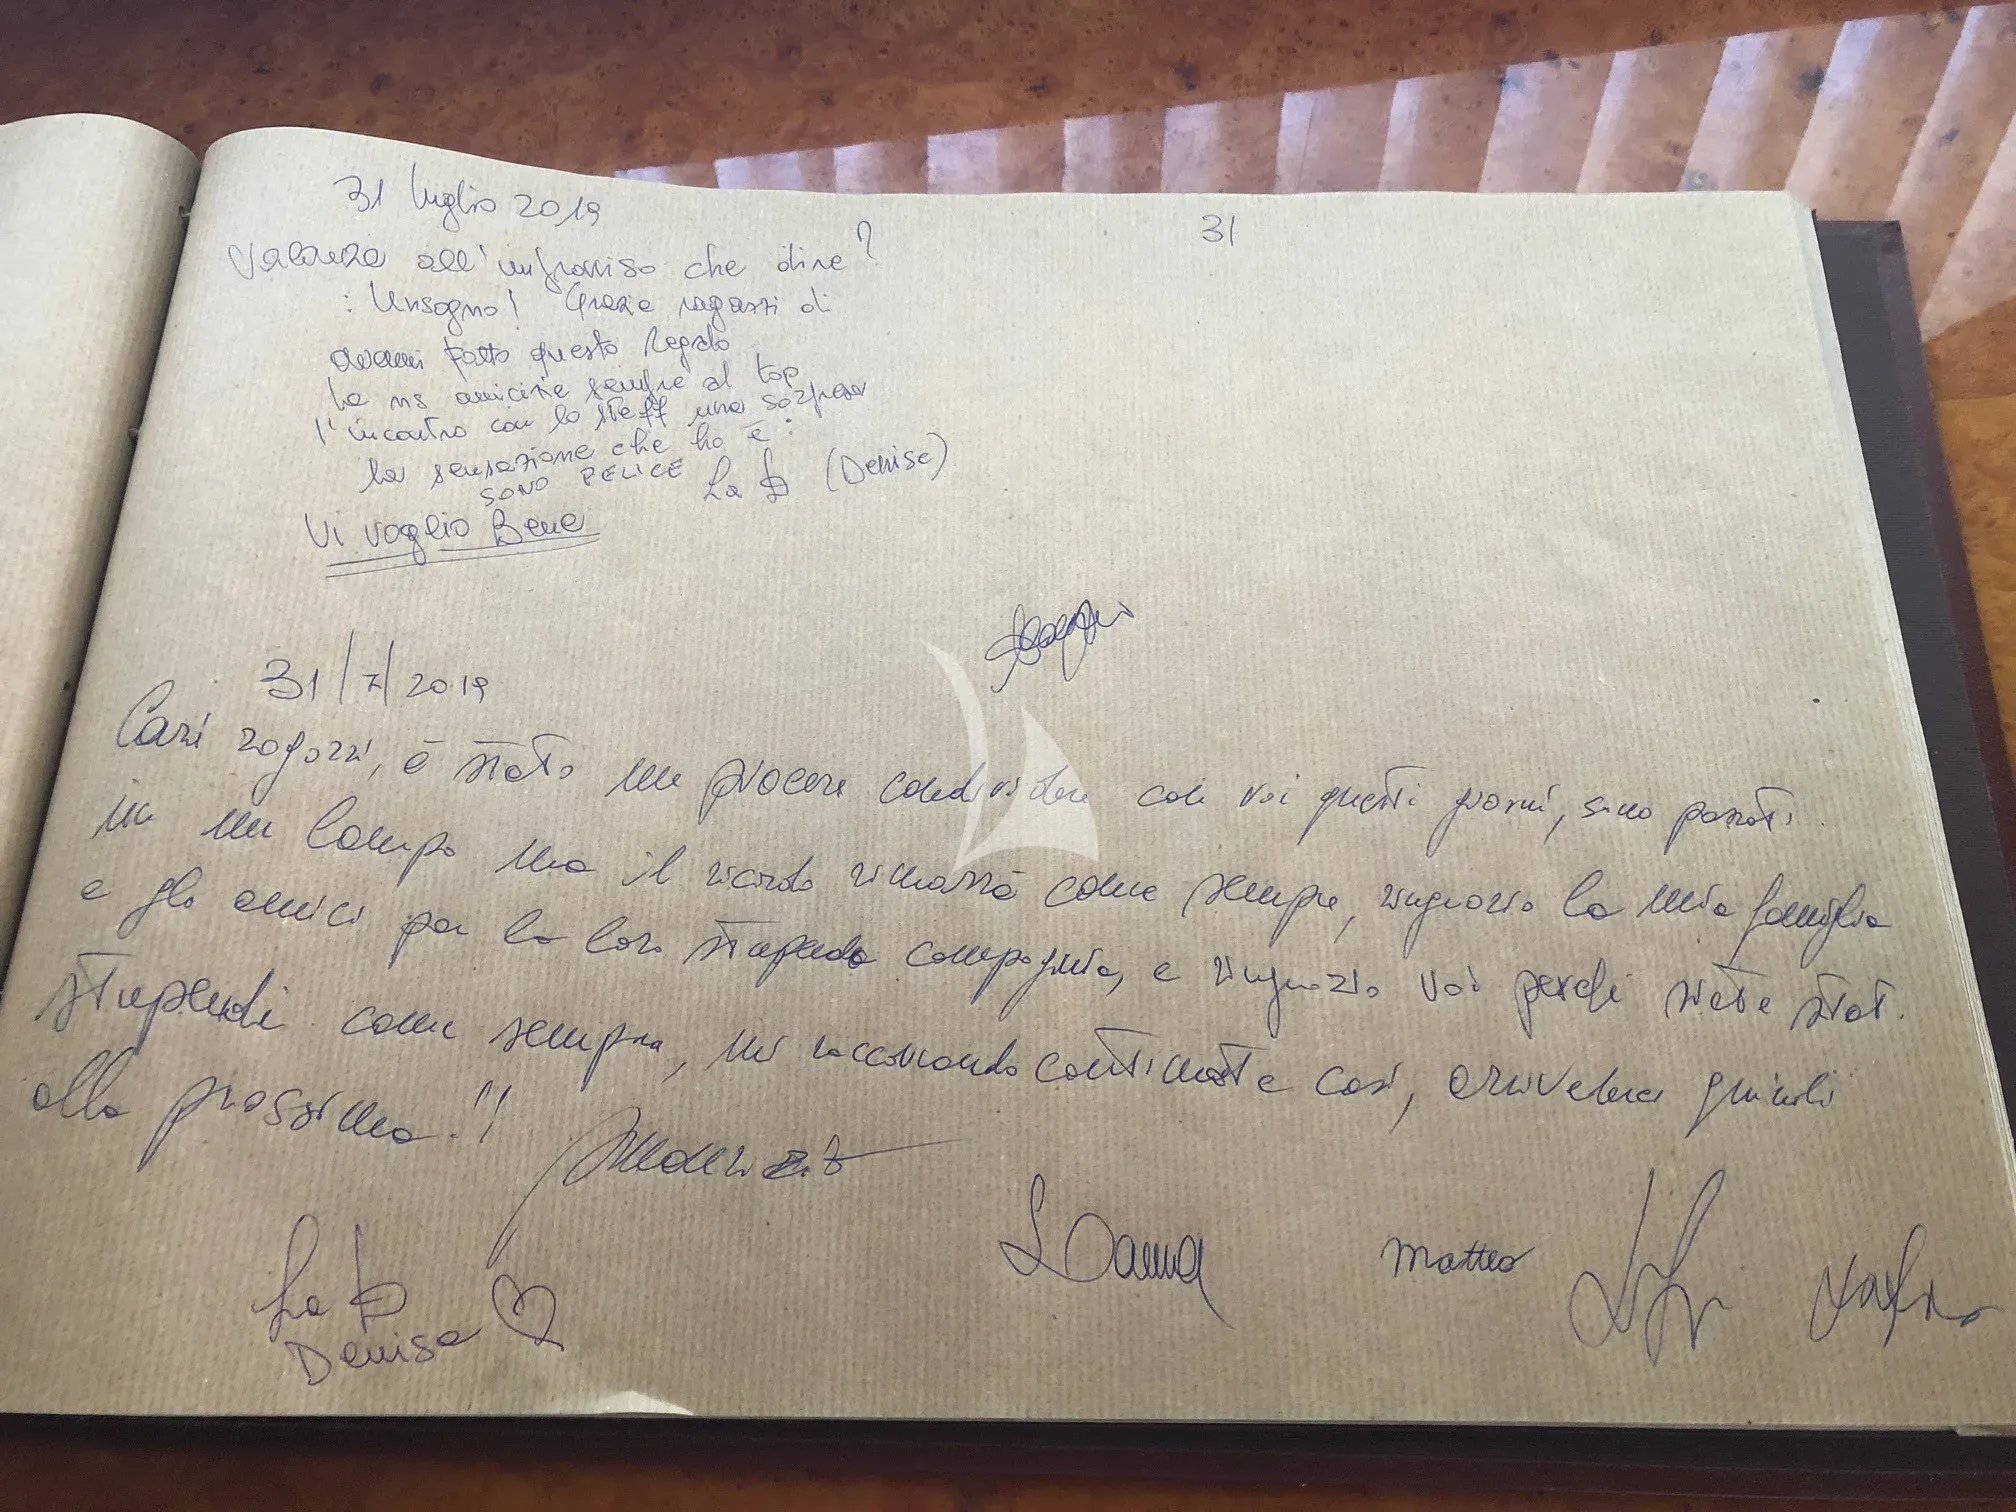 31 luglio 2019
31
Vacanza all'improvviso che dire?
: Un sogno! Grazie ragazzi di
avermi fatto questo Regalo
La ns amicizia sempre al top
l'incontro con lo steff una sorpresa
la sensazione che ho è:
SONO FELICE La D (Denise)
Vi voglio Bene
31/7/2019
Cari ragazzi, è stato un piacere condividere con voi questi giorni, sono passati
in un lampo ma il ricordo rimarrà come sempre, ringrazio la mia famiglia
e gli amici per la loro stupenda compagnia, e ringrazio voi perché siete stati
stupendi come sempre, mi raccomando continuate così, arrivederci quindi
alla prossima!!
Maurizio
La D
Denise
Matteo